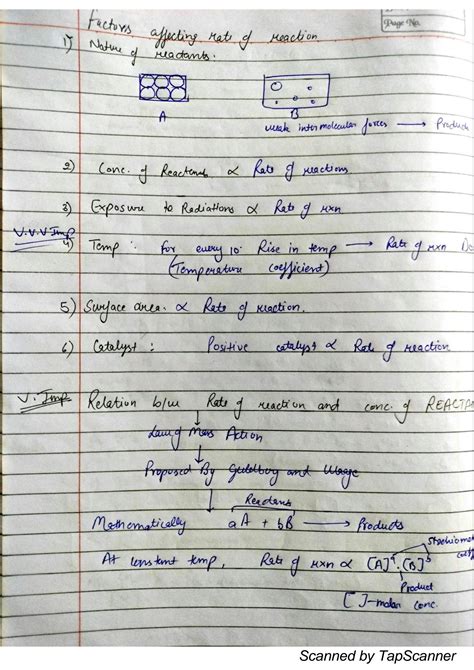 Page No.
Factors affecting rate of reaction
1) Nature of reactants.
A B
weak intermolecular forces → Products
2) Conc. of Reactants ∝ Rate of reactions
3) Exposure to Radiations ∝ Rate of rxn
V.V.V Imp
4) Temp : for every 10° Rise in temp → Rate of rxn Do
(Temperature coefficient)
5) Surface area ∝ Rate of reaction.
6) Catalyst : Positive catalyst ∝ Rate of reaction
V. Imp Relation b/w Rate of reaction and conc. of REACTA
Law of Mass Action
Proposed By Guldberg and Waage
Reactants
Mathematically aA + bB → Products
Stoichiomet
coeff
At constant temp, Rate of rxn ∝ [A]ᵃ.[B]ᵇ
Product
[ ]-molar conc.
Scanned by TapScanner